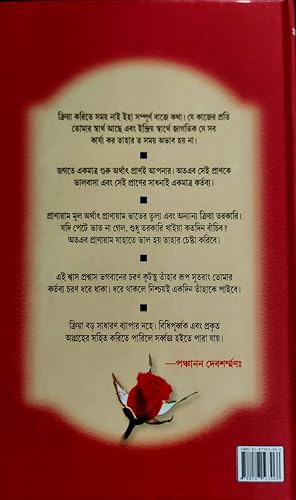 ক্রিয়া করিতে সময় নাই ইহা সম্পূর্ণ বাজে কথা। যে কাজের প্রতি
তোমার স্বার্থ আছে এবং ইন্দ্রিয় স্বার্থে জাগতিক যে সব
কার্য্য কর তাহার ত সময় অভাব হয় না।
জগতে একমাত্র গুরু অর্থাৎ প্রাণই আপনার। অতএব সেই প্রাণকে
ভালবাসা এবং সেই প্রাণের সাধনাই একমাত্র কর্তব্য।
প্রাণায়াম মূল অর্থাৎ প্রাণায়াম ভাতের তুল্য এবং অন্যান্য ক্রিয়া তরকারি।
যদি পেটে ভাত না গেল, শুধু তরকারি খাইয়া কতদিন বাঁচিব?
অতএব প্রাণায়াম যাহাতে ভাল হয় তাহার চেষ্টা করিবে।
এই শ্বাস প্রশ্বাস ভগবানের চরণ কূটস্থ তাঁহার রূপ সুতরাং তোমার
কর্তব্য চরণ ধরে থাকা। ধরে থাকলে নিশ্চয়ই একদিন তাঁহাকে পাইবে।
ক্রিয়া বড় সাধারণ ব্যাপার নহে। বিধিপূর্ব্বক এবং প্রকৃত
আগ্রহের সহিত করিতে পারিলে সর্ব্বজ্ঞ হইতে পারা যায়।
—পঞ্চানন দেবশর্ম্মণঃ